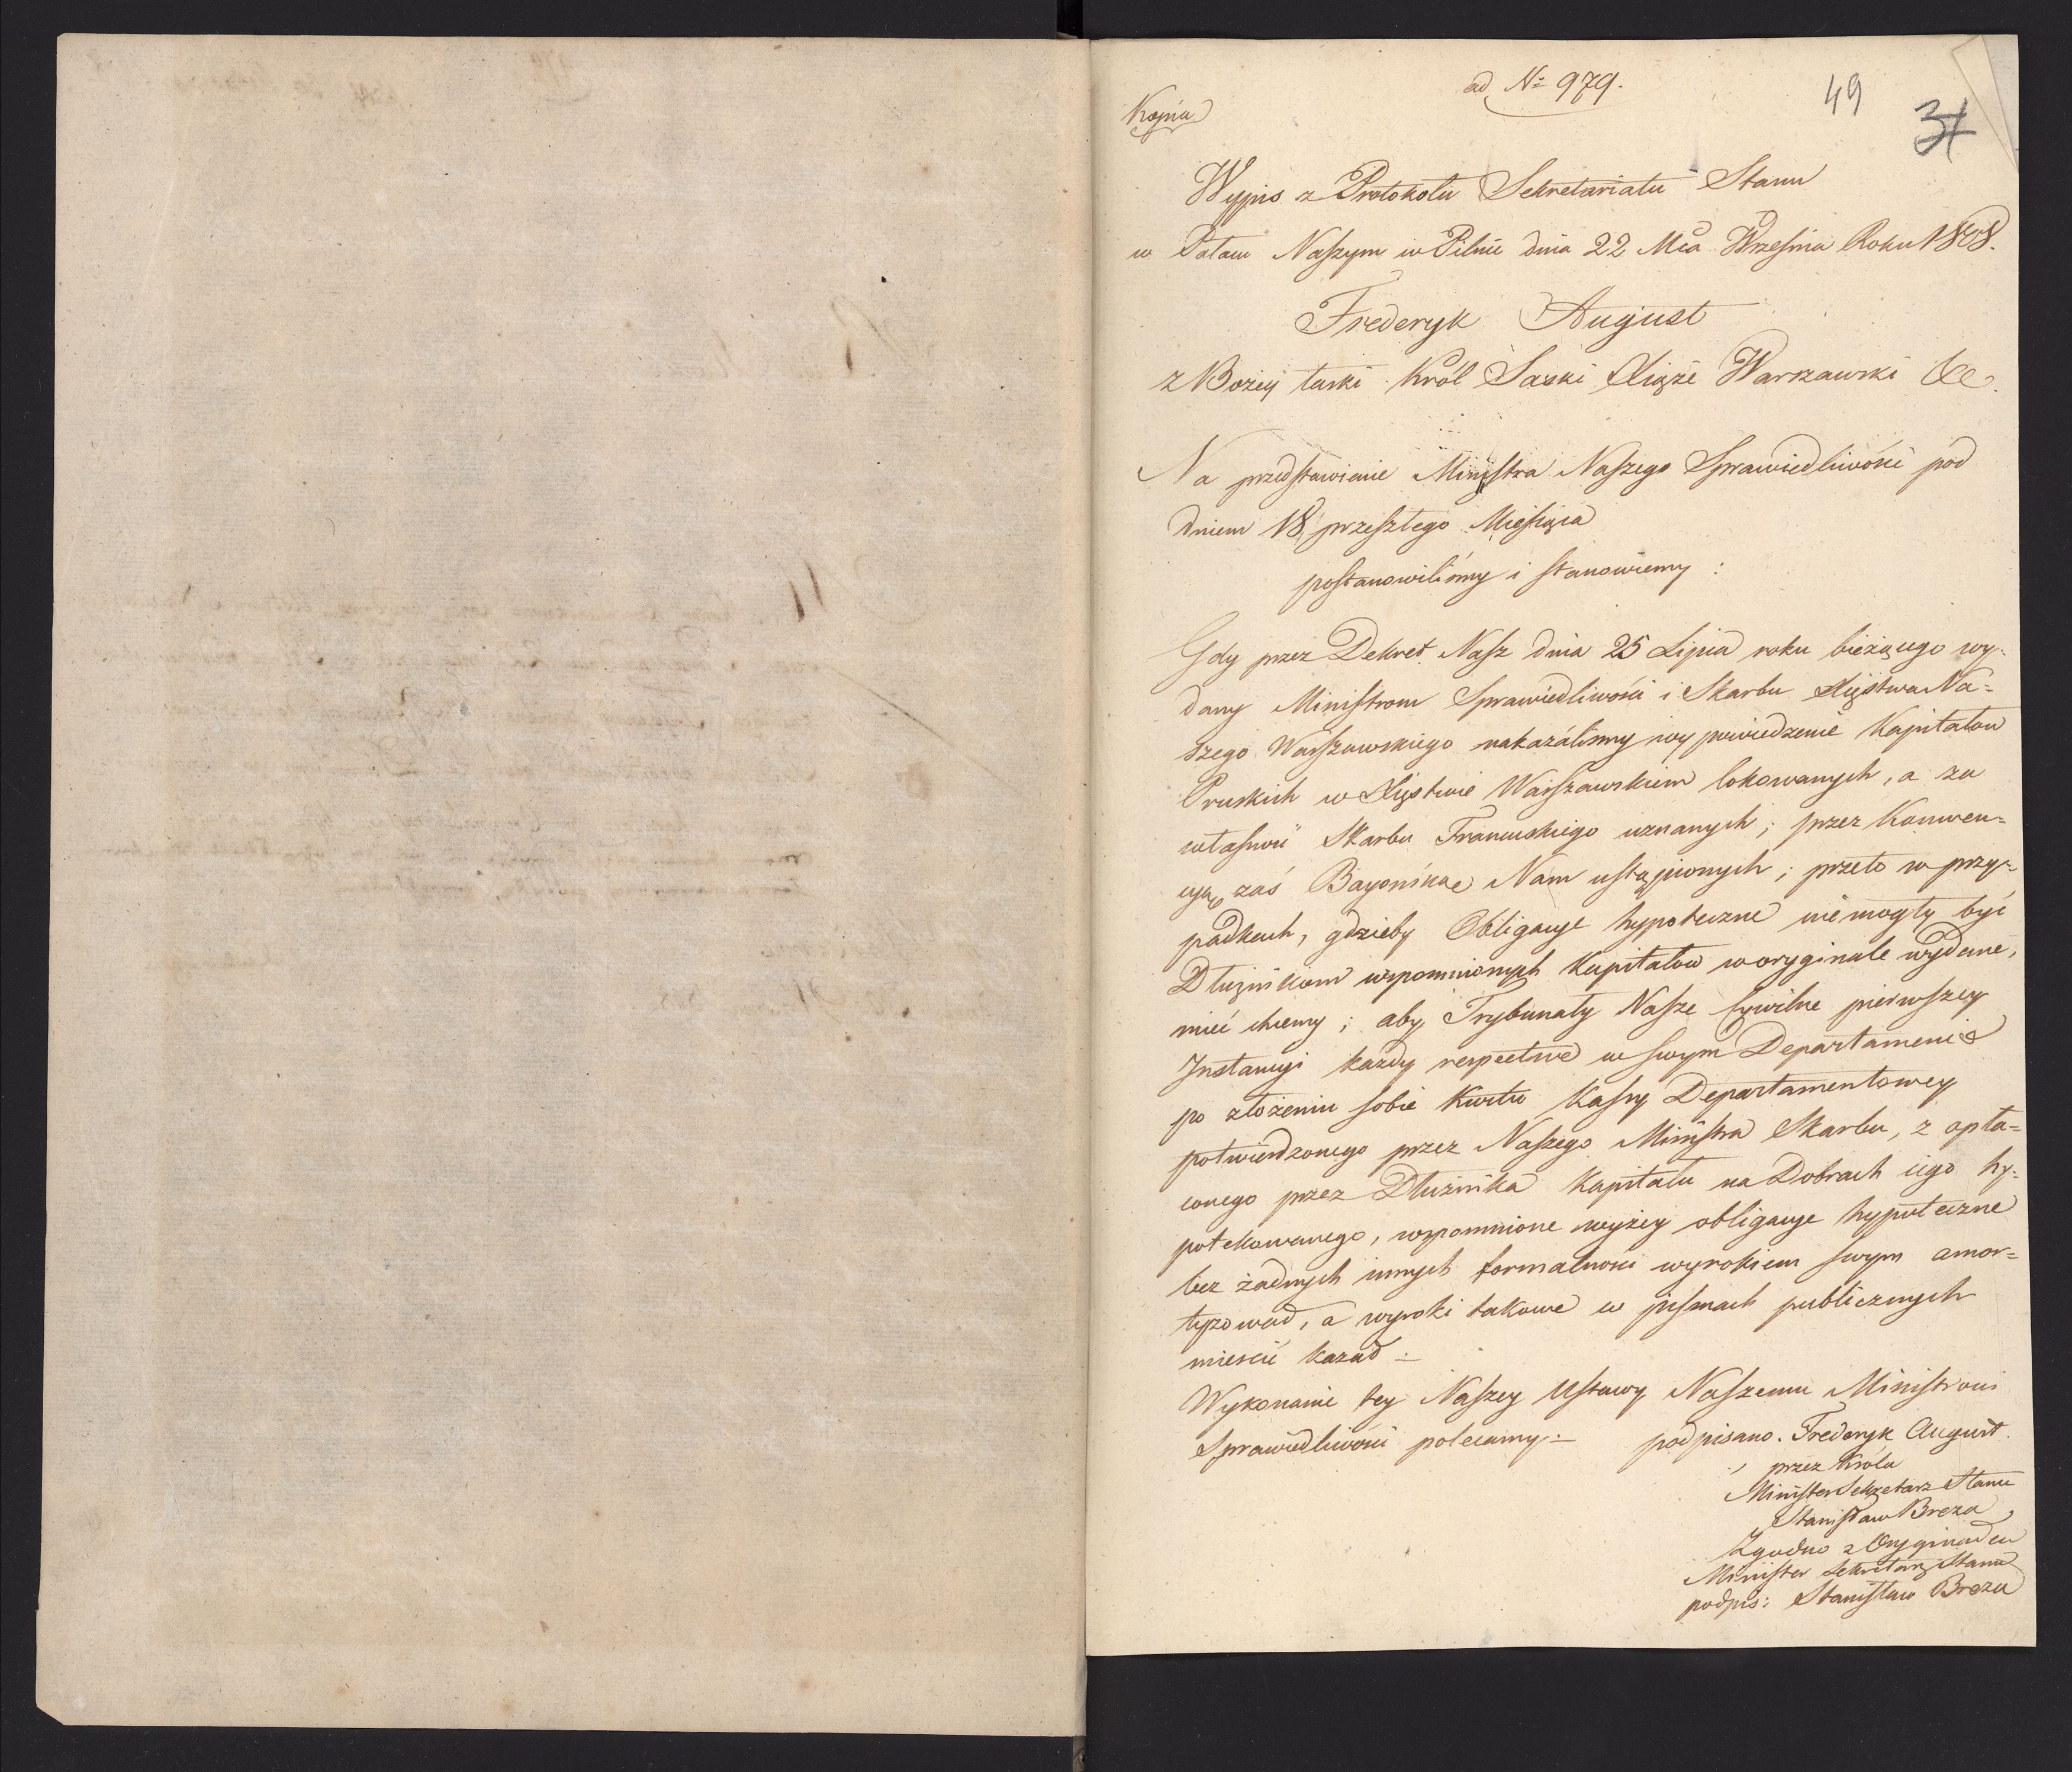 ad No 979.
49
37
Kopia
Wypis z Protokołu Sekretariatu Stanu
w Pałacu Naszym w Pilnie dnia 22 Mca Września Roku 1808.
Frederyk August
z Bożey łaski Król Saski Xiąże Warszawski &c.
Na przedstawienie Ministra Naszego Sprawiedliwości pod
dniem 18 przeszłego Miesiąca
postanowiliśmy i stanowiemy :
Gdy przez Dekret Nasz dnia 25 Lipca roku bieżącego wy-
dany Ministrom Sprawiedliwości i Skarbu Xięstwa Na=
szego Warszawskiego nakazaliśmy wypowiedzenie Kapitałow
Pruskich w Xięstwie Warszawskiem lokowanych, a za
własność Skarbu Francuskiego uznanych ; przez Konwen=
cyą zaś Bayońską Nam ustąpionych ; przeto w przy=
padkach, gdzieby Obligacye hypoteczne niemogły być
Dłużnikom wspomnionych Kapitałow w oryginale wydane,
mieć chcemy ; aby Trybunały Nasze Cywilne pierwszey
Instancyi każdy respective w swym Departamencie
po złożeniu sobie Kwitu Kassy Departamentowey
potwierdzonego przez Naszego Ministra Skarbu, z opła=
conego przez Dłużnika Kapitału na Dobrach iego hy-
potekowanego, wspomnione wyżey obligacye hypoteczne
bez żadnych innych formalności wyrokiem swym amor=
tyzował, a wyroki takowe w pismach publicznych
mieścić kazał :-
Wykonanie tey Naszey Ustawy Naszemu Ministrowi
Sprawiedliwości polecamy :- podpisano. Frederyk August.
przez Króla
Minister Sekretarz Stanu
Stanisław Breza
Zgodno z Oryginałem
Minister Sekretarz Stanu
podpis: Stanisław Breza